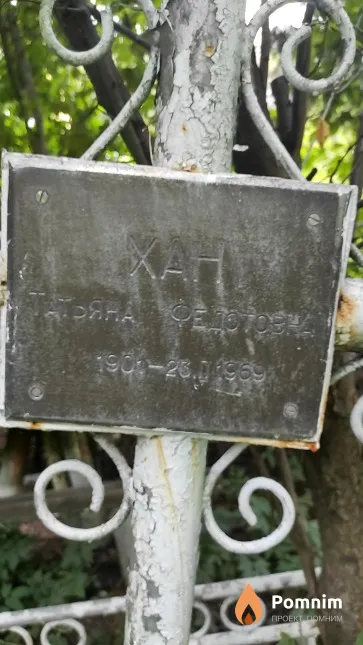 ХАН
ТАТЬЯНА ФЕДОТОВНА
1901-23.II 1969
Pomnim
ПРОЕКТ ПОМНИМ